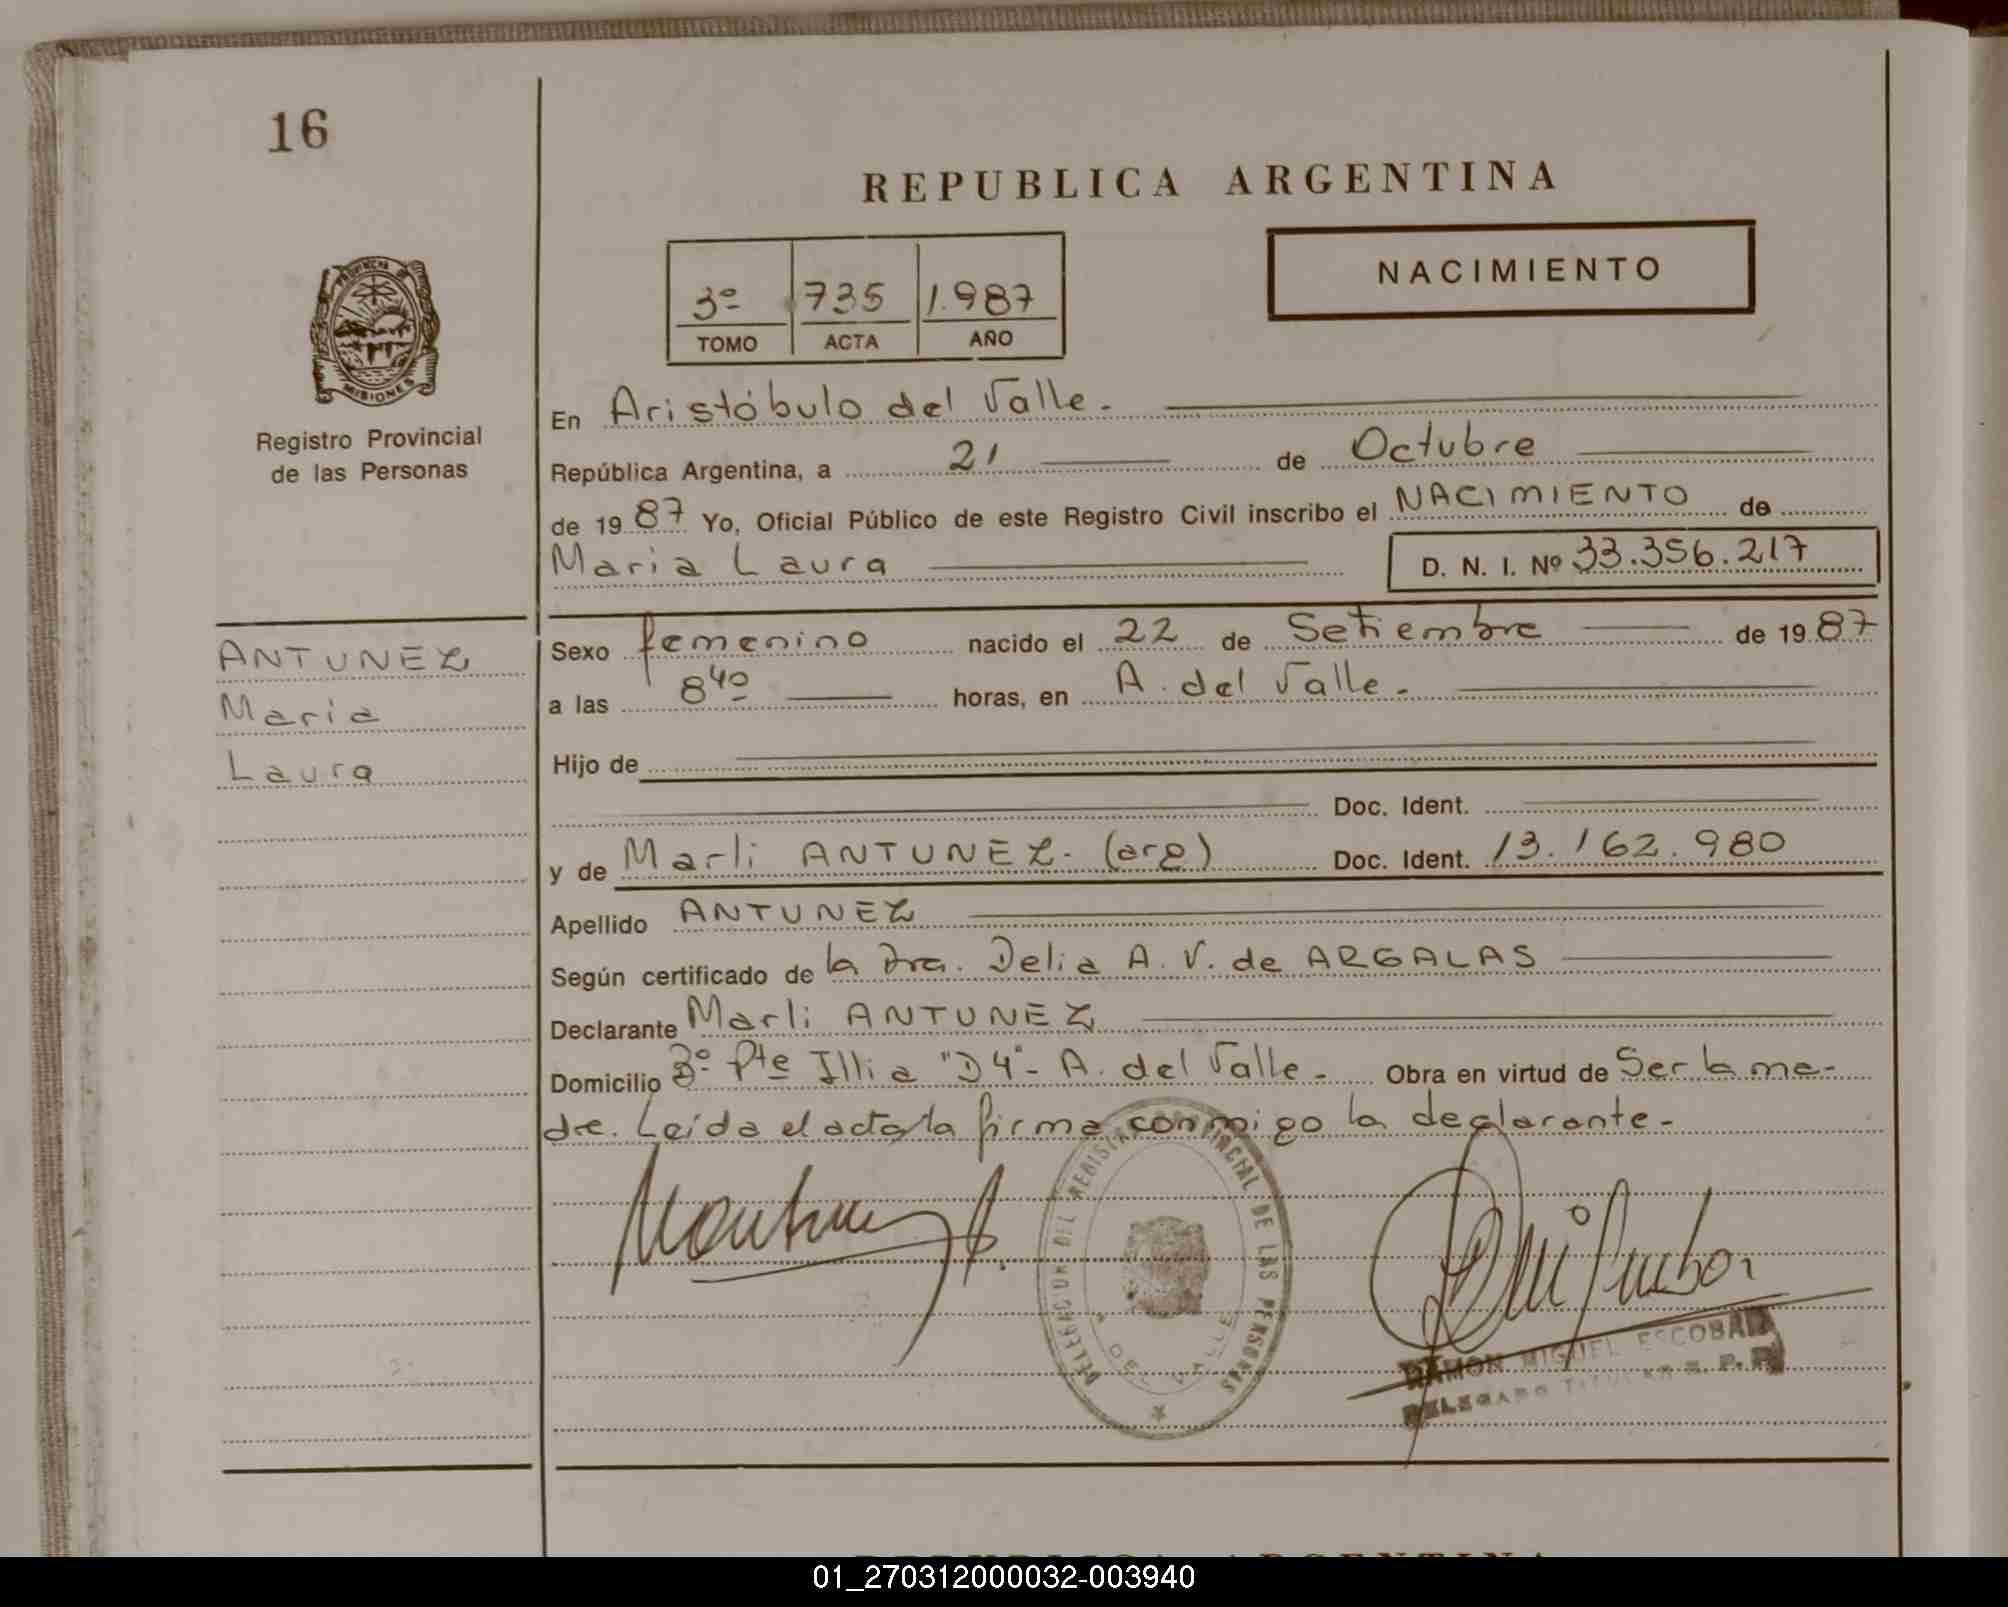 16
REPUBLICA ARGENTINA
NACIMIENTO
3º 735 1.987
TOMO ACTA AÑO
PROVINCIA DE
MISIONES
Registro Provincial
de las Personas
En Aristóbulo del Valle.
República Argentina, a 21 de Octubre
de 19 87 Yo, Oficial Público de este Registro Civil inscribo el NACIMIENTO de
Maria Laura D. N. I. Nº 33.356.217
ANTUNEZ
Maria
Laura
Sexo femenino nacido el 22 de Setiembre de 19 87
a las 8 40 horas, en A. del Valle.
Hijo de
Doc. Ident.
y de Marli ANTUNEZ. (arg) Doc. Ident. 13.162.980
Apellido ANTUNEZ
Según certificado de la Dra. Delia A. V. de ARGALAS
Declarante Marli ANTUNEZ
Domicilio Bº Pte Illia "D4"- A. del Valle. Obra en virtud de Ser la ma-
dre. Leída el acta, la firma conmigo la declarante.-
DELEGACION DEL REGISTRO PROVINCIAL DE LAS PERSONAS
A. DEL VALLE
RAMON MIGUEL ESCOBAR
DELEGADO TITULAR R. P. P.
01_270312000032-003940